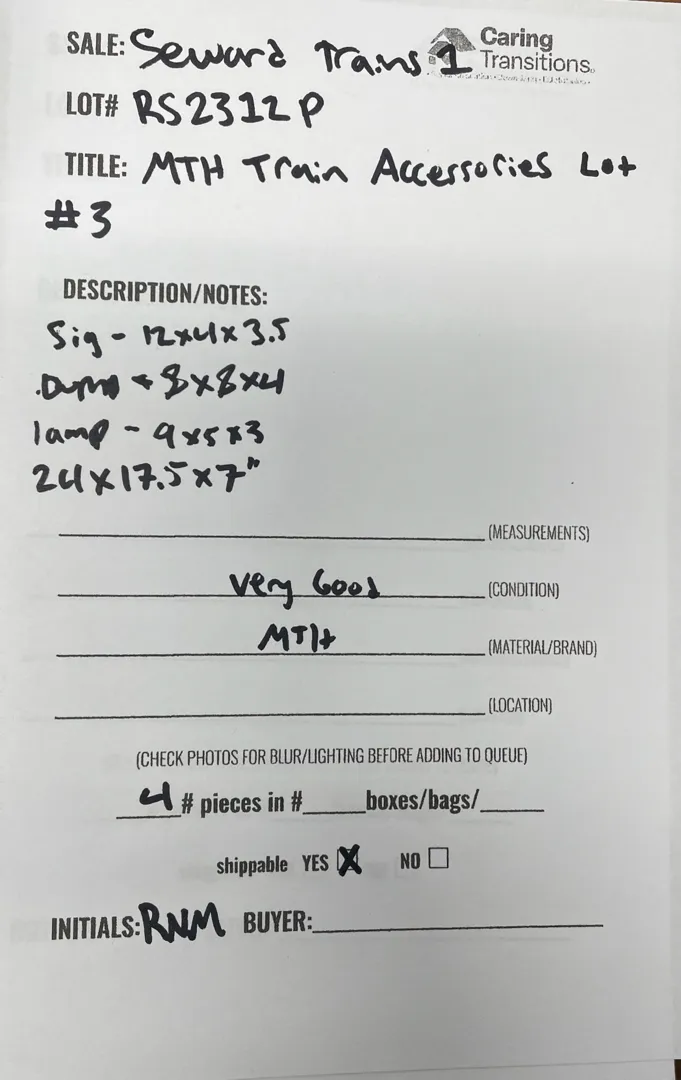 SALE: Seward Trains 1
Caring
Transitions
LOT# RS2312P
TITLE: MTH Train Accessories Lot
#3
DESCRIPTION/NOTES:
Sig - 12x4x3.5
8x8x4
lamp - 9x5x3
24x17.5x7"
(MEASUREMENTS)
Very Good (CONDITION)
MTH (MATERIAL/BRAND)
(LOCATION)
(CHECK PHOTOS FOR BLUR/LIGHTING BEFORE ADDING TO QUEUE)
4 # pieces in #_____boxes/bags/_____
shippable YES ☒ NO ☐
INITIALS: RNM BUYER: